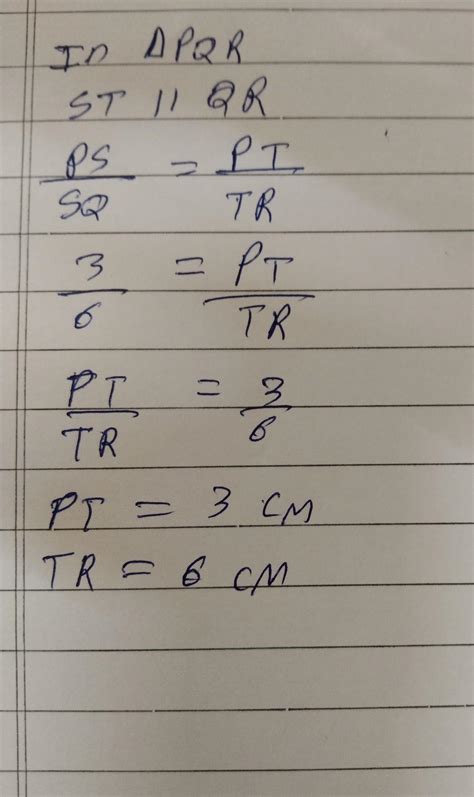 In ΔPQR
ST || QR
PS/SQ = PT/TR
3/6 = PT/TR
PT/TR = 3/6
PT = 3 CM
TR = 6 CM